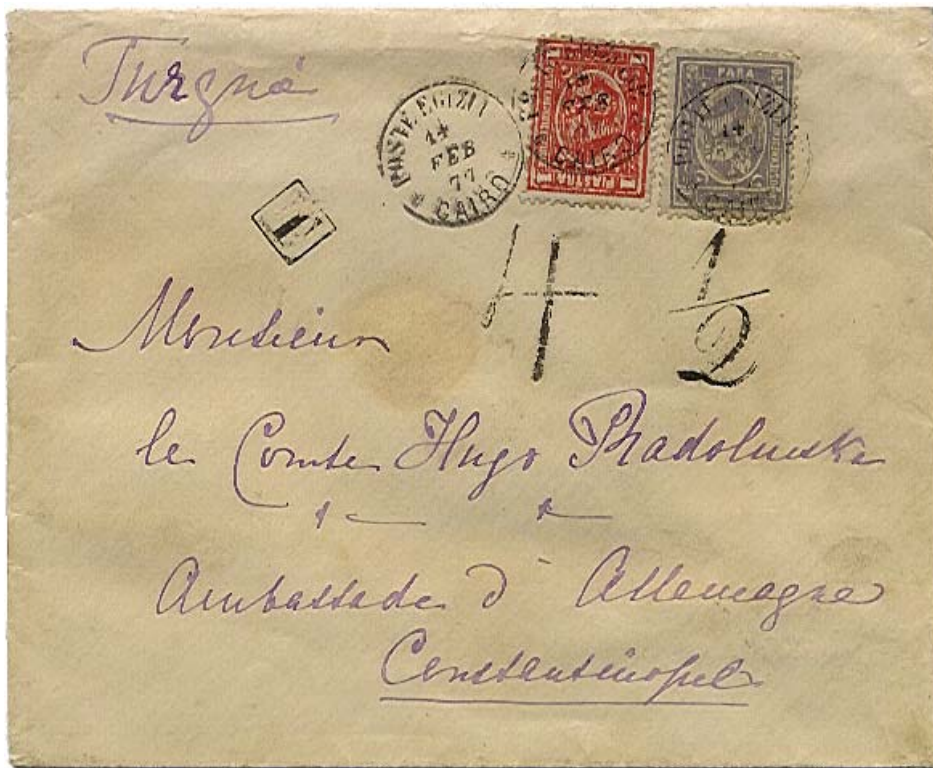 Turquie
POSTE EGIZIANE
14
FEB
77
CAIRO
T
PARA
4 1/2
Monsieur
le Comte Hugo Rhadolinska
Ambassade d' Allemagne
Constantinopel